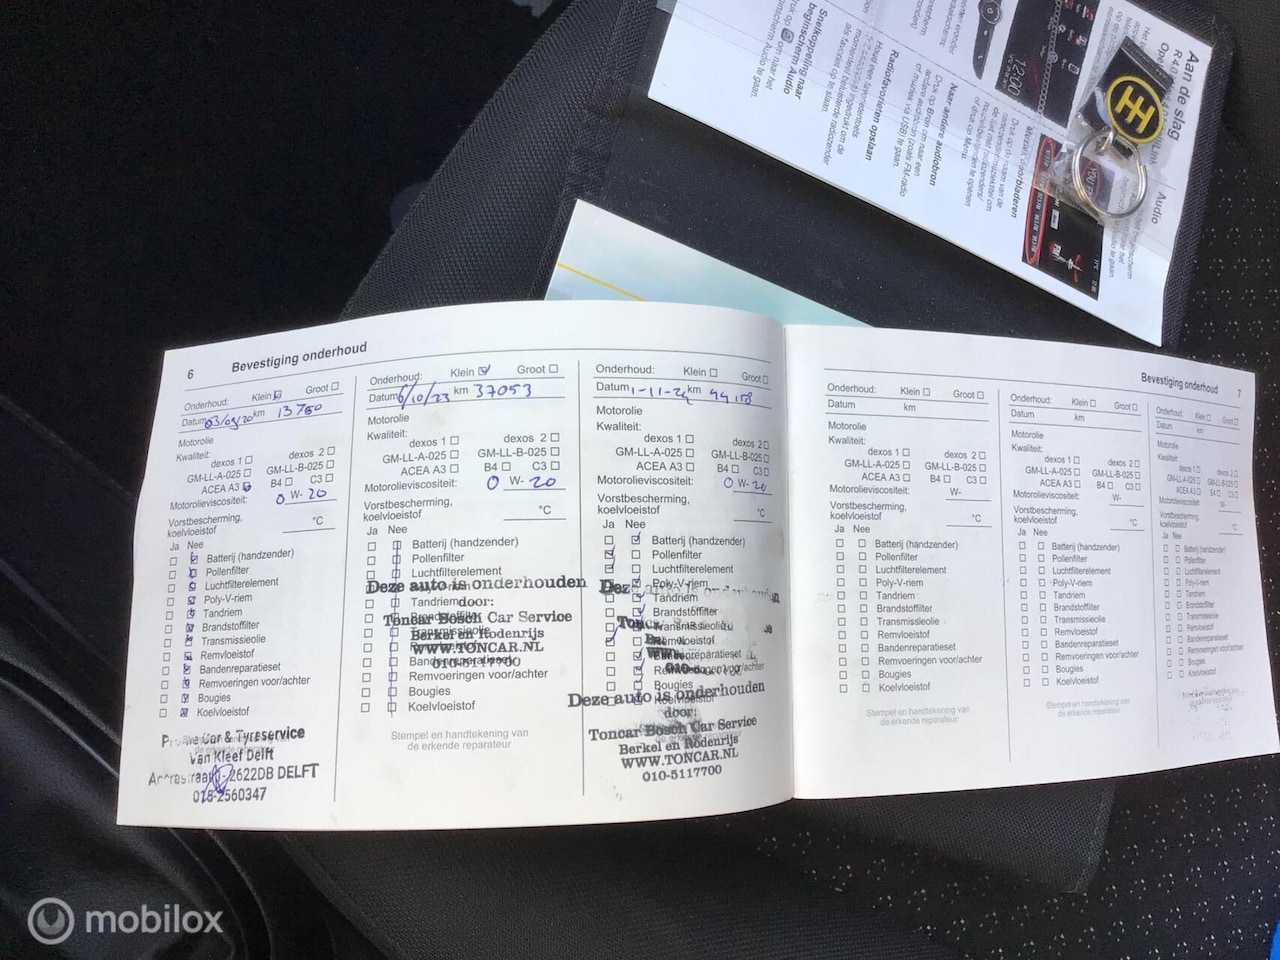 6
Bevestiging onderhoud
Onderhoud: Klein Groot
Datum km 13 760
Motorolie
Kwaliteit:
dexos 1 dexos 2
GM-LL-A-025 GM-LL-B-025
ACEA A3 B4 C3
Motorolieviscositeit: 0 W- 20
Vorstbescherming, koelvloeistof °C
Ja Nee
Batterij (handzender)
Pollenfilter
Luchtfilterelement
Poly-V-riem
Tandriem
Brandstoffilter
Transmissieolie
Remvloeistof
Bandenreparatieset
Remvoeringen voor/achter
Bougies
Koelvloeistof
Car & Tyreservice
Van Kleef Delft
2622DB DELFT
015-2560347
Onderhoud: Klein Groot
Datum 6/10/23 km 37053
Motorolie
Kwaliteit:
dexos 1 dexos 2
GM-LL-A-025 GM-LL-B-025
ACEA A3 B4 C3
Motorolieviscositeit: 0 W- 20
Vorstbescherming, koelvloeistof °C
Ja Nee
Batterij (handzender)
Pollenfilter
Luchtfilterelement
Deze auto is onderhouden
Tandriem
door:
Toncar Bosch Car Service
Berkel en Rodenrijs
WWW.TONCAR.NL
010-5117700
Remvoeringen voor/achter
Bougies
Koelvloeistof
Stempel en handtekening van
de erkende reparateur
Onderhoud: Klein Groot
Datum 1-11-24 km 44 158
Motorolie
Kwaliteit:
dexos 1 dexos 2
GM-LL-A-025 GM-LL-B-025
ACEA A3 B4 C3
Motorolieviscositeit: 0 W- 20
Vorstbescherming, koelvloeistof °C
Ja Nee
Batterij (handzender)
Pollenfilter
Luchtfilterelement
Poly-V-riem
Tandriem
Brandstoffilter
Transmissieolie
Remvloeistof
Bandenreparatieset
Remvoeringen voor/achter
Bougies
Koelvloeistof
Deze auto is onderhouden
door:
Toncar Bosch Car Service
Berkel en Rodenrijs
WWW.TONCAR.NL
010-5117700
Bevestiging onderhoud 7
Onderhoud: Klein Groot
Datum km
Motorolie
Kwaliteit:
dexos 1 dexos 2
GM-LL-A-025 GM-LL-B-025
ACEA A3 B4 C3
Motorolieviscositeit: W-
Vorstbescherming, koelvloeistof °C
Ja Nee
Batterij (handzender)
Pollenfilter
Luchtfilterelement
Poly-V-riem
Tandriem
Brandstoffilter
Transmissieolie
Remvloeistof
Bandenreparatieset
Remvoeringen voor/achter
Bougies
Koelvloeistof
Stempel en handtekening van
de erkende reparateur
Onderhoud: Klein Groot
Datum km
Motorolie
Kwaliteit:
dexos 1 dexos 2
GM-LL-A-025 GM-LL-B-025
ACEA A3 B4 C3
Motorolieviscositeit: W-
Vorstbescherming, koelvloeistof °C
Ja Nee
Batterij (handzender)
Pollenfilter
Luchtfilterelement
Poly-V-riem
Tandriem
Brandstoffilter
Transmissieolie
Remvloeistof
Bandenreparatieset
Remvoeringen voor/achter
Bougies
Koelvloeistof
Stempel en handtekening van
de erkende reparateur
Onderhoud: Klein Groot
Datum km
Motorolie
Kwaliteit:
dexos 1 dexos 2
GM-LL-A-025 GM-LL-B-025
ACEA A3 B4 C3
Motorolieviscositeit: W-
Vorstbescherming, koelvloeistof °C
Ja Nee
Batterij (handzender)
Pollenfilter
Luchtfilterelement
Poly-V-riem
Tandriem
Brandstoffilter
Transmissieolie
Remvloeistof
Bandenreparatieset
Remvoeringen voor/achter
Bougies
Koelvloeistof
Aan de slag
Audio
Naar andere audiobron
Druk op Bron om naar een
andere audiobron (zoals FM-radio
of muziek via USB) te gaan.
Radiofavorieten opslaan
Houd een favorietentoets
ingedrukt om de
als favoriet op te slaan.
Snelkoppeling naar
beginscherm Audio
om naar het
beginscherm Audio te gaan.
12:00
mobilox